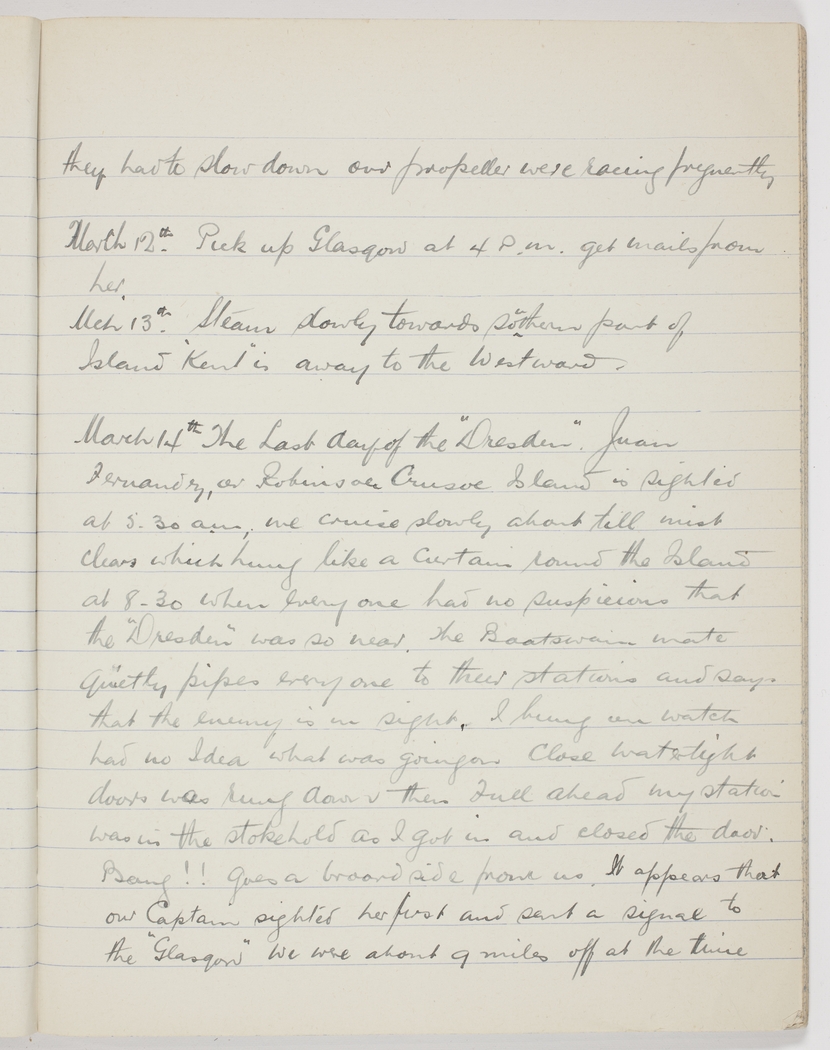 they had to slow down our propeller were racing frequently
March 12th. Pick up Glasgow at 4 P.m. get mails from
her.
Mch 13th. Steam slowly towards sothern part of
Island "Kent" is away to the Westward.
March 14th The Last day of the "Dresden". Juan
Fernandez, or Robinson Crusoe Island is sighted
at 5.30 am, we cruise slowly about till mist
clears which hung like a Curtain round the Island
at 8-30 when every one had no suspicions that
the "Dresden" was so near. The Boatswain mate
quietly pipes every one to their stations and says
that the enemy is in sight. I being on watch
had no Idea what was going on Close watertight
doors was rung down & then Full ahead my station
was in the stokehold as I got in and closed the door.
Bang!! goes a broardside from us. It appears that
our Captain sighted her first and sent a signal to
the "Glasgow" We were about 9 miles off at the time